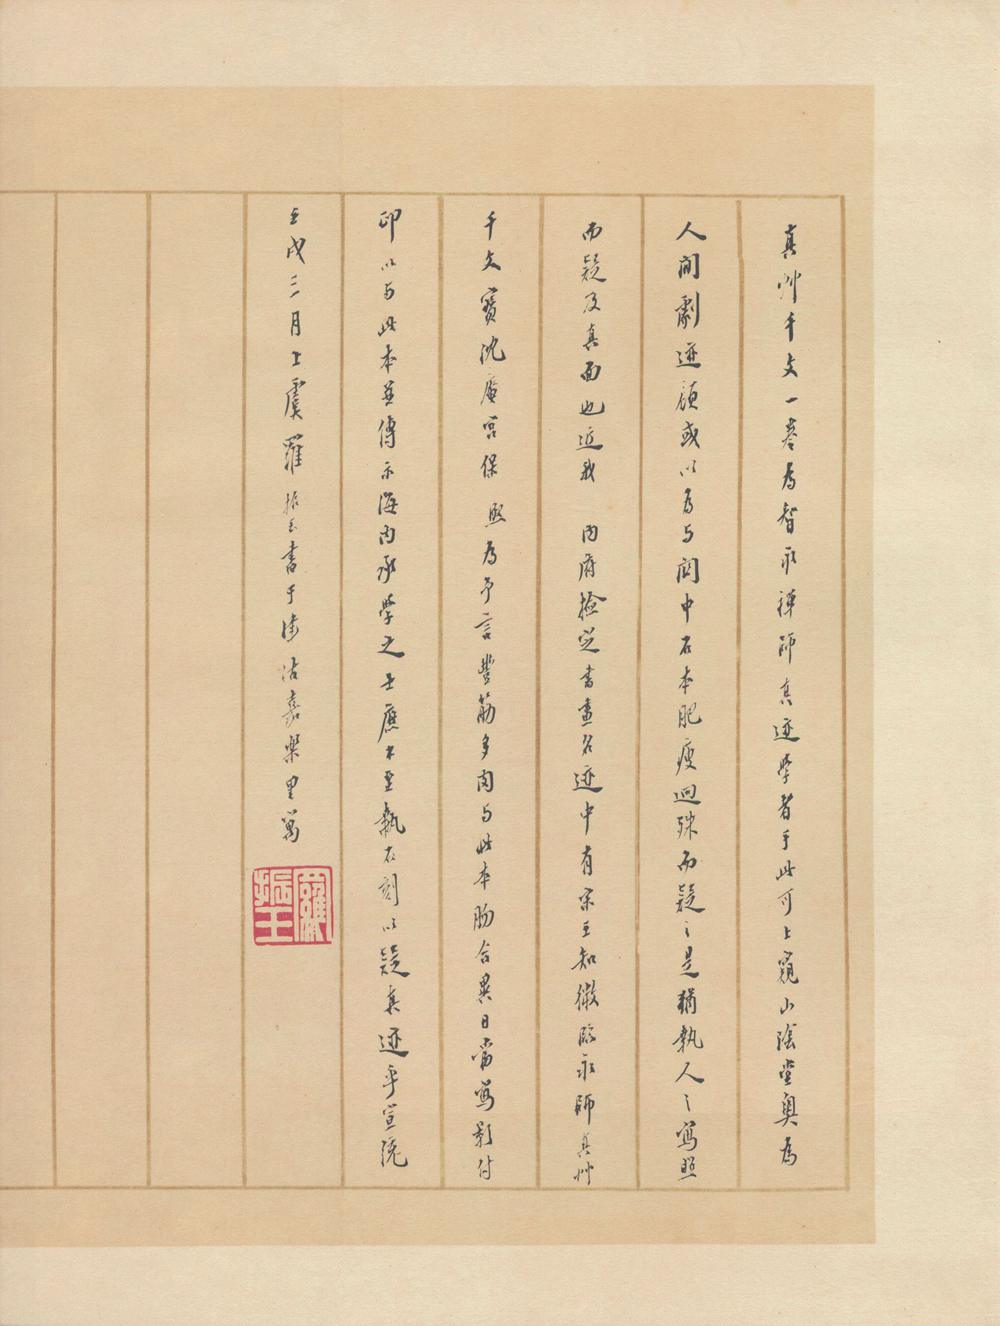 真艸千文一卷為智永禪師真迹學者于此可上窺山陰堂奧為
人間劇迹顧或以為与関中石本肥瘦迥殊而疑之是猶執人之寫照
而疑及真面也近我 內府撿定書畫名迹中有宋王知微臨永師真艸
千文寶沈庵宮保熙為予言豐筋多肉与此本吻合異日當寫影付
印以与此本並傳示海內承學之士應不至執石刻以疑真迹乎宣統
壬戌三月上虞羅振玉書于津沽嘉樂里寓
羅振玉